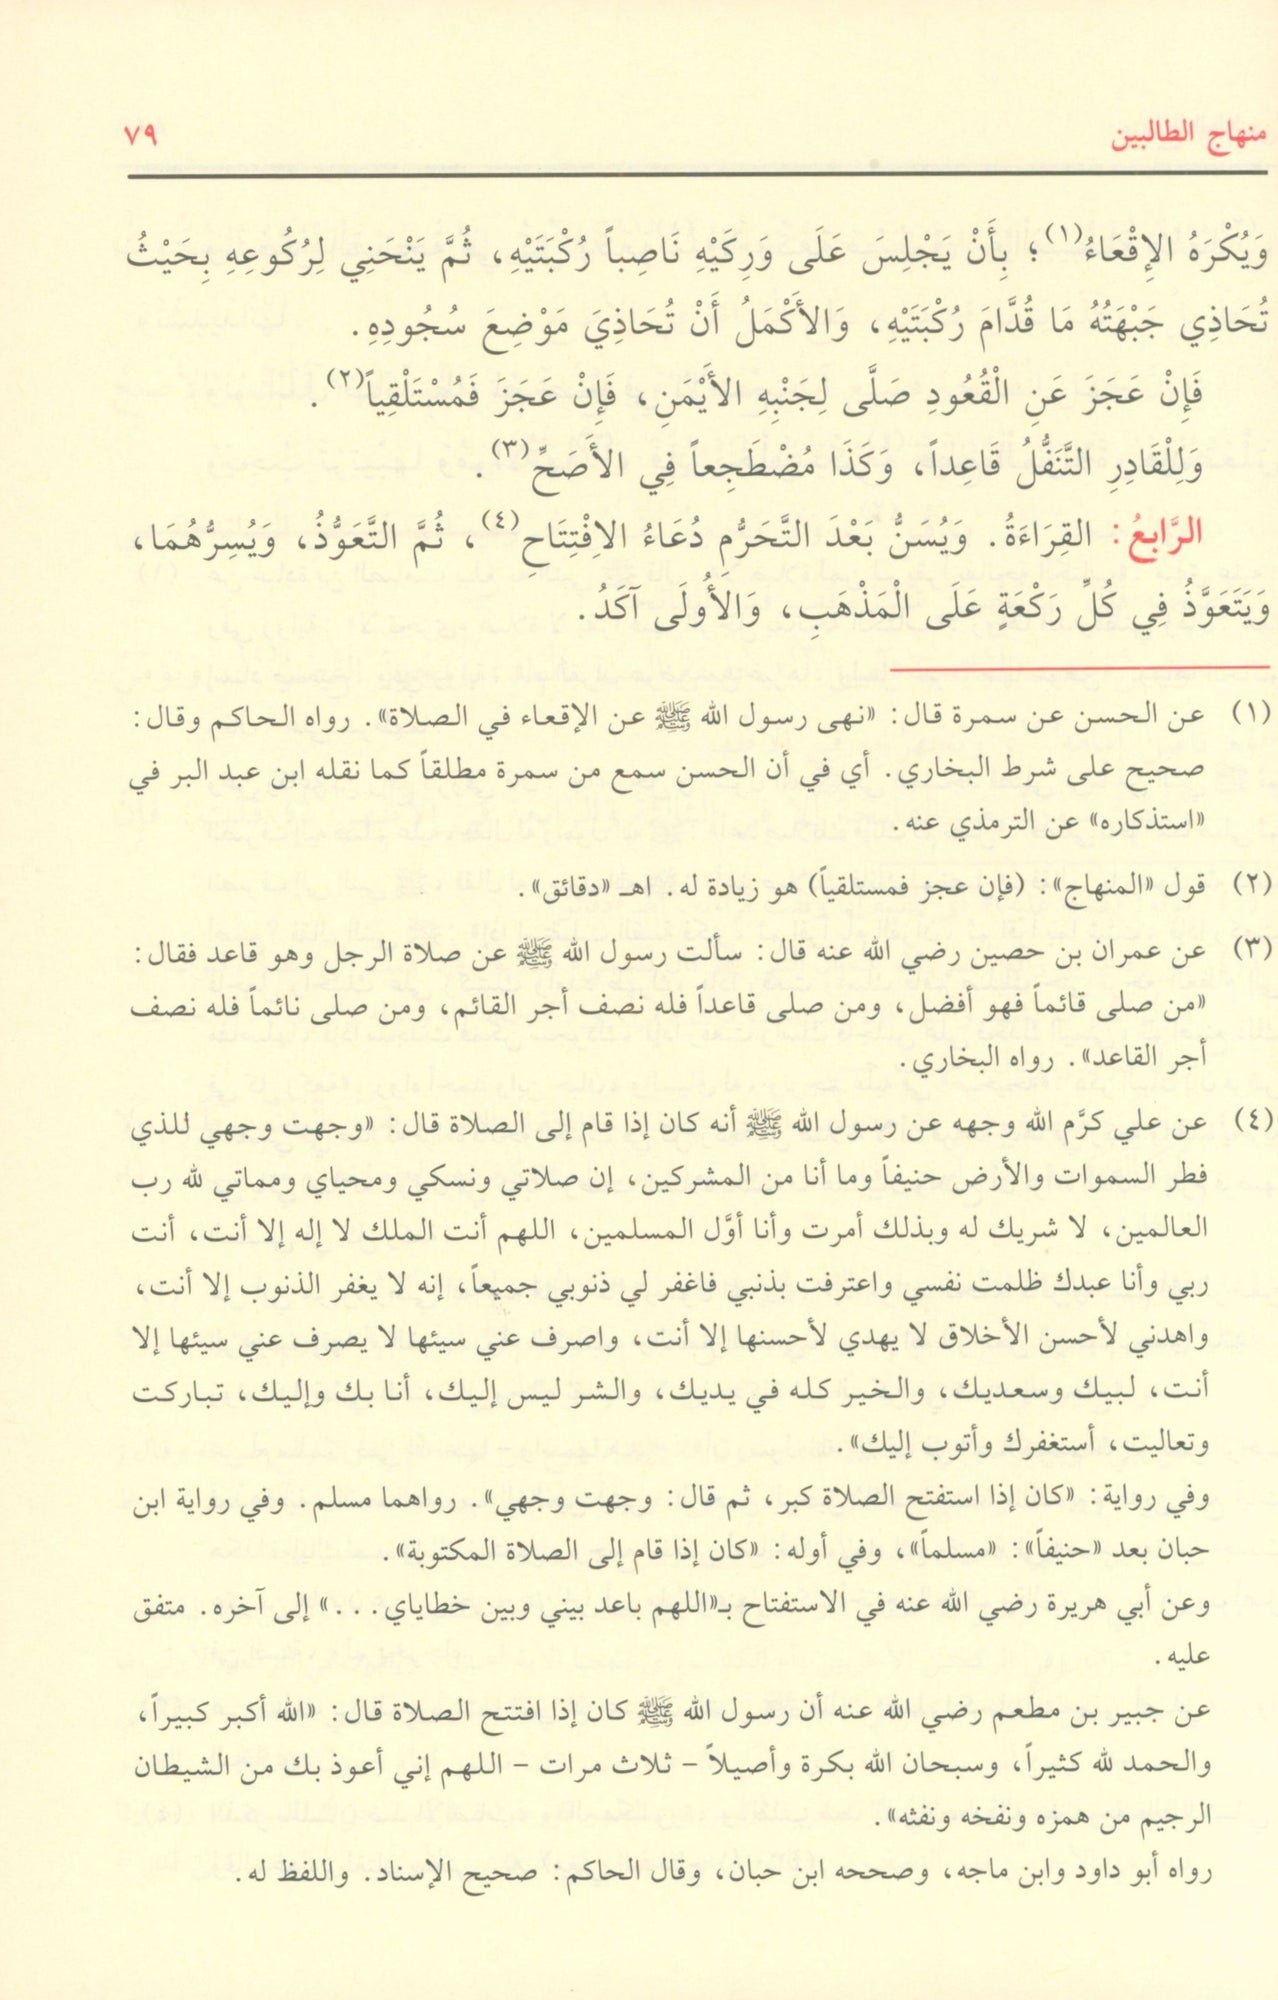 منهاج الطالبين ٧٩
وَيُكْرَهُ الإِقْعَاءُ(١)؛ بِأَنْ يَجْلِسَ عَلَى وَرِكَيْهِ نَاصِباً رُكْبَتَيْهِ، ثُمَّ يَنْحَنِي لِرُكُوعِهِ بِحَيْثُ
تُحَاذِي جَبْهَتُهُ مَا قُدَّامَ رُكْبَتَيْهِ، وَالأَكْمَلُ أَنْ تُحَاذِيَ مَوْضِعَ سُجُودِهِ.
فَإِنْ عَجَزَ عَنِ الْقُعُودِ صَلَّى لِجَنْبِهِ الأَيْمَنِ، فَإِنْ عَجَزَ فَمُسْتَلْقِياً(٢).
وَلِلْقَادِرِ التَّنَفُّلُ قَاعِداً، وَكَذَا مُضْطَجِعاً فِي الأَصَحِّ(٣).
الرَّابِعُ: القِرَاءَةُ. وَيُسَنُّ بَعْدَ التَّحَرُّمِ دُعَاءُ الاِفْتِتَاحِ(٤)، ثُمَّ التَّعَوُّذُ، وَيُسِرُّهُمَا،
وَيَتَعَوَّذُ فِي كُلِّ رَكْعَةٍ عَلَى الْمَذْهَبِ، وَالأُولَى آكَدُ.
(١) عن الحسن عن سمرة قال: «نهى رسول الله ﷺ عن الإقعاء في الصلاة». رواه الحاكم وقال:
صحيح على شرط البخاري. أي في أن الحسن سمع من سمرة مطلقاً كما نقله ابن عبد البر في
«استذكاره» عن الترمذي عنه.
(٢) قول «المنهاج»: (فإن عجز فمستلقياً) هو زيادة له. اهـ «دقائق».
(٣) عن عمران بن حصين رضي الله عنه قال: سألت رسول الله ﷺ عن صلاة الرجل وهو قاعد فقال:
«من صلى قائماً فهو أفضل، ومن صلى قاعداً فله نصف أجر القائم، ومن صلى نائماً فله نصف
أجر القاعد». رواه البخاري.
(٤) عن علي كرَّم الله وجهه عن رسول الله ﷺ أنه كان إذا قام إلى الصلاة قال: «وجهت وجهي للذي
فطر السموات والأرض حنيفاً وما أنا من المشركين، إن صلاتي ونسكي ومحياي ومماتي لله رب
العالمين، لا شريك له وبذلك أمرت وأنا أوَّل المسلمين، اللهم أنت الملك لا إله إلا أنت، أنت
ربي وأنا عبدك ظلمت نفسي واعترفت بذنبي فاغفر لي ذنوبي جميعاً، إنه لا يغفر الذنوب إلا أنت،
واهدني لأحسن الأخلاق لا يهدي لأحسنها إلا أنت، واصرف عني سيئها لا يصرف عني سيئها إلا
أنت، لبيك وسعديك، والخير كله في يديك، والشر ليس إليك، أنا بك وإليك، تباركت
وتعاليت، أستغفرك وأتوب إليك».
وفي رواية: «كان إذا استفتح الصلاة كبر، ثم قال: وجهت وجهي». رواهما مسلم. وفي رواية ابن
حبان بعد «حنيفاً»: «مسلماً»، وفي أوله: «كان إذا قام إلى الصلاة المكتوبة».
وعن أبي هريرة رضي الله عنه في الاستفتاح بـ«اللهم باعد بيني وبين خطاياي...» إلى آخره. متفق
عليه.
عن جبير بن مطعم رضي الله عنه أن رسول الله ﷺ كان إذا افتتح الصلاة قال: «الله أكبر كبيراً،
والحمد لله كثيراً، وسبحان الله بكرة وأصيلاً - ثلاث مرات - اللهم إني أعوذ بك من الشيطان
الرجيم من همزه ونفخه ونفثه».
رواه أبو داود وابن ماجه، وصححه ابن حبان، وقال الحاكم: صحيح الإسناد. واللفظ له.